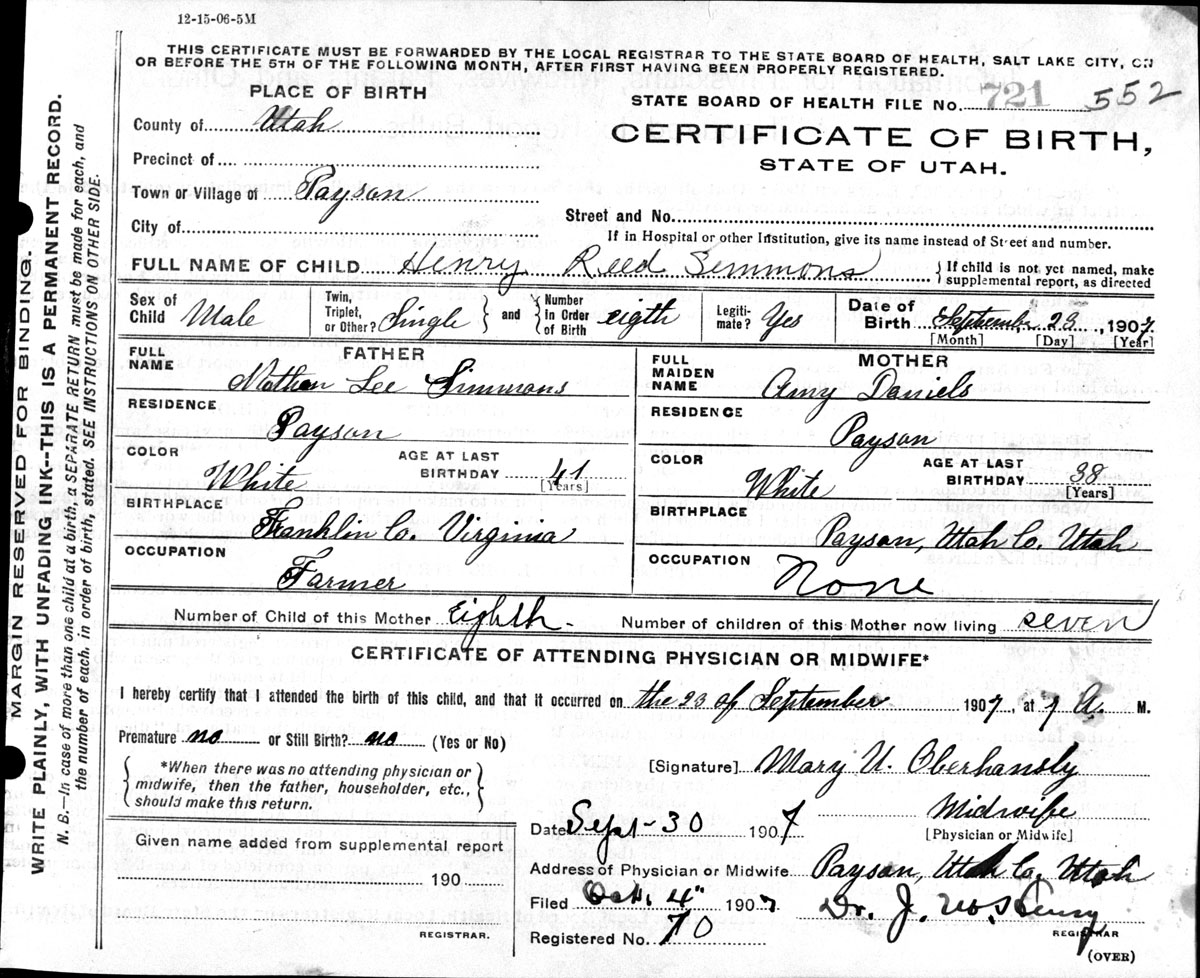 12-15-06-5M
THIS CERTIFICATE MUST BE FORWARDED BY THE LOCAL REGISTRAR TO THE STATE BOARD OF HEALTH, SALT LAKE CITY, ON
OR BEFORE THE 5TH OF THE FOLLOWING MONTH, AFTER FIRST HAVING BEEN PROPERLY REGISTERED.
MARGIN RESERVED FOR BINDING.
WRITE PLAINLY, WITH UNFADING INK--THIS IS A PERMANENT RECORD.
N. B.—In case of more than one child at a birth, a SEPARATE RETURN must be made for each, and
the number of each, in order of birth, stated. SEE INSTRUCTIONS ON OTHER SIDE.
PLACE OF BIRTH
County of Utah
Precinct of
Town or Village of Payson
City of
STATE BOARD OF HEALTH FILE No. 721 552
CERTIFICATE OF BIRTH,
STATE OF UTAH.
Street and No.
If in Hospital or other Institution, give its name instead of Street and number.
FULL NAME OF CHILD Henry Reed Simmons { If child is not yet named, make
supplemental report, as directed
Sex of Child Male
Twin, Triplet, or Other? Single } and { Number In Order of Birth eigth
Legitimate? Yes
Date of Birth September 23, 1907
[Month] [Day] [Year]
FATHER
FULL NAME Nathan Lee Simmons
RESIDENCE Payson
COLOR White AGE AT LAST BIRTHDAY 41 [Years]
BIRTHPLACE Franklin Co. Virginia
OCCUPATION Farmer
MOTHER
FULL MAIDEN NAME Amy Daniels
RESIDENCE Payson
COLOR White AGE AT LAST BIRTHDAY 38 [Years]
BIRTHPLACE Payson, Utah Co. Utah
OCCUPATION None
Number of Child of this Mother Eighth. Number of children of this Mother now living seven
CERTIFICATE OF ATTENDING PHYSICIAN OR MIDWIFE*
I hereby certify that I attended the birth of this child, and that it occurred on the 23 of September 1907, at 7 A. M.
Premature no or Still Birth? no (Yes or No)
{ *When there was no attending physician or
midwife, then the father, householder, etc.,
should make this return. }
[Signature] Mary U. Oberhansly
Midwife
[Physician or Midwife]
Date Sept-30 1907
Given name added from supplemental report
190
REGISTRAR.
Address of Physician or Midwife Payson, Utah Co. Utah
Filed Oct. 4" 1907 Dr. J.
REGISTRAR
Registered No. 70
(OVER)